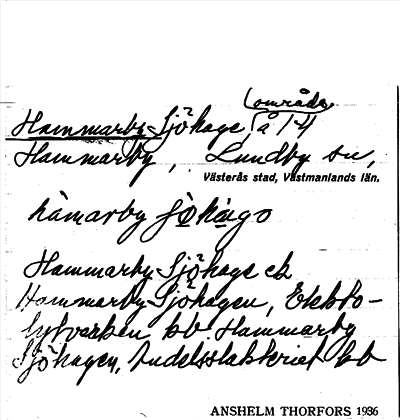 (område)
Hammarby-Sjöhage, å 14
Hammarby, Lundby sn,
Västerås stad, Västmanlands län.
hàmarby ʃö̀ha̱go
Hammarby Sjöhage ek
Hammarby Sjöhagen, Elektro-
lytverken bb Hammarby
Sjöhagen, Andelsslakteriet bb
ANSHELM THORFORS 1936